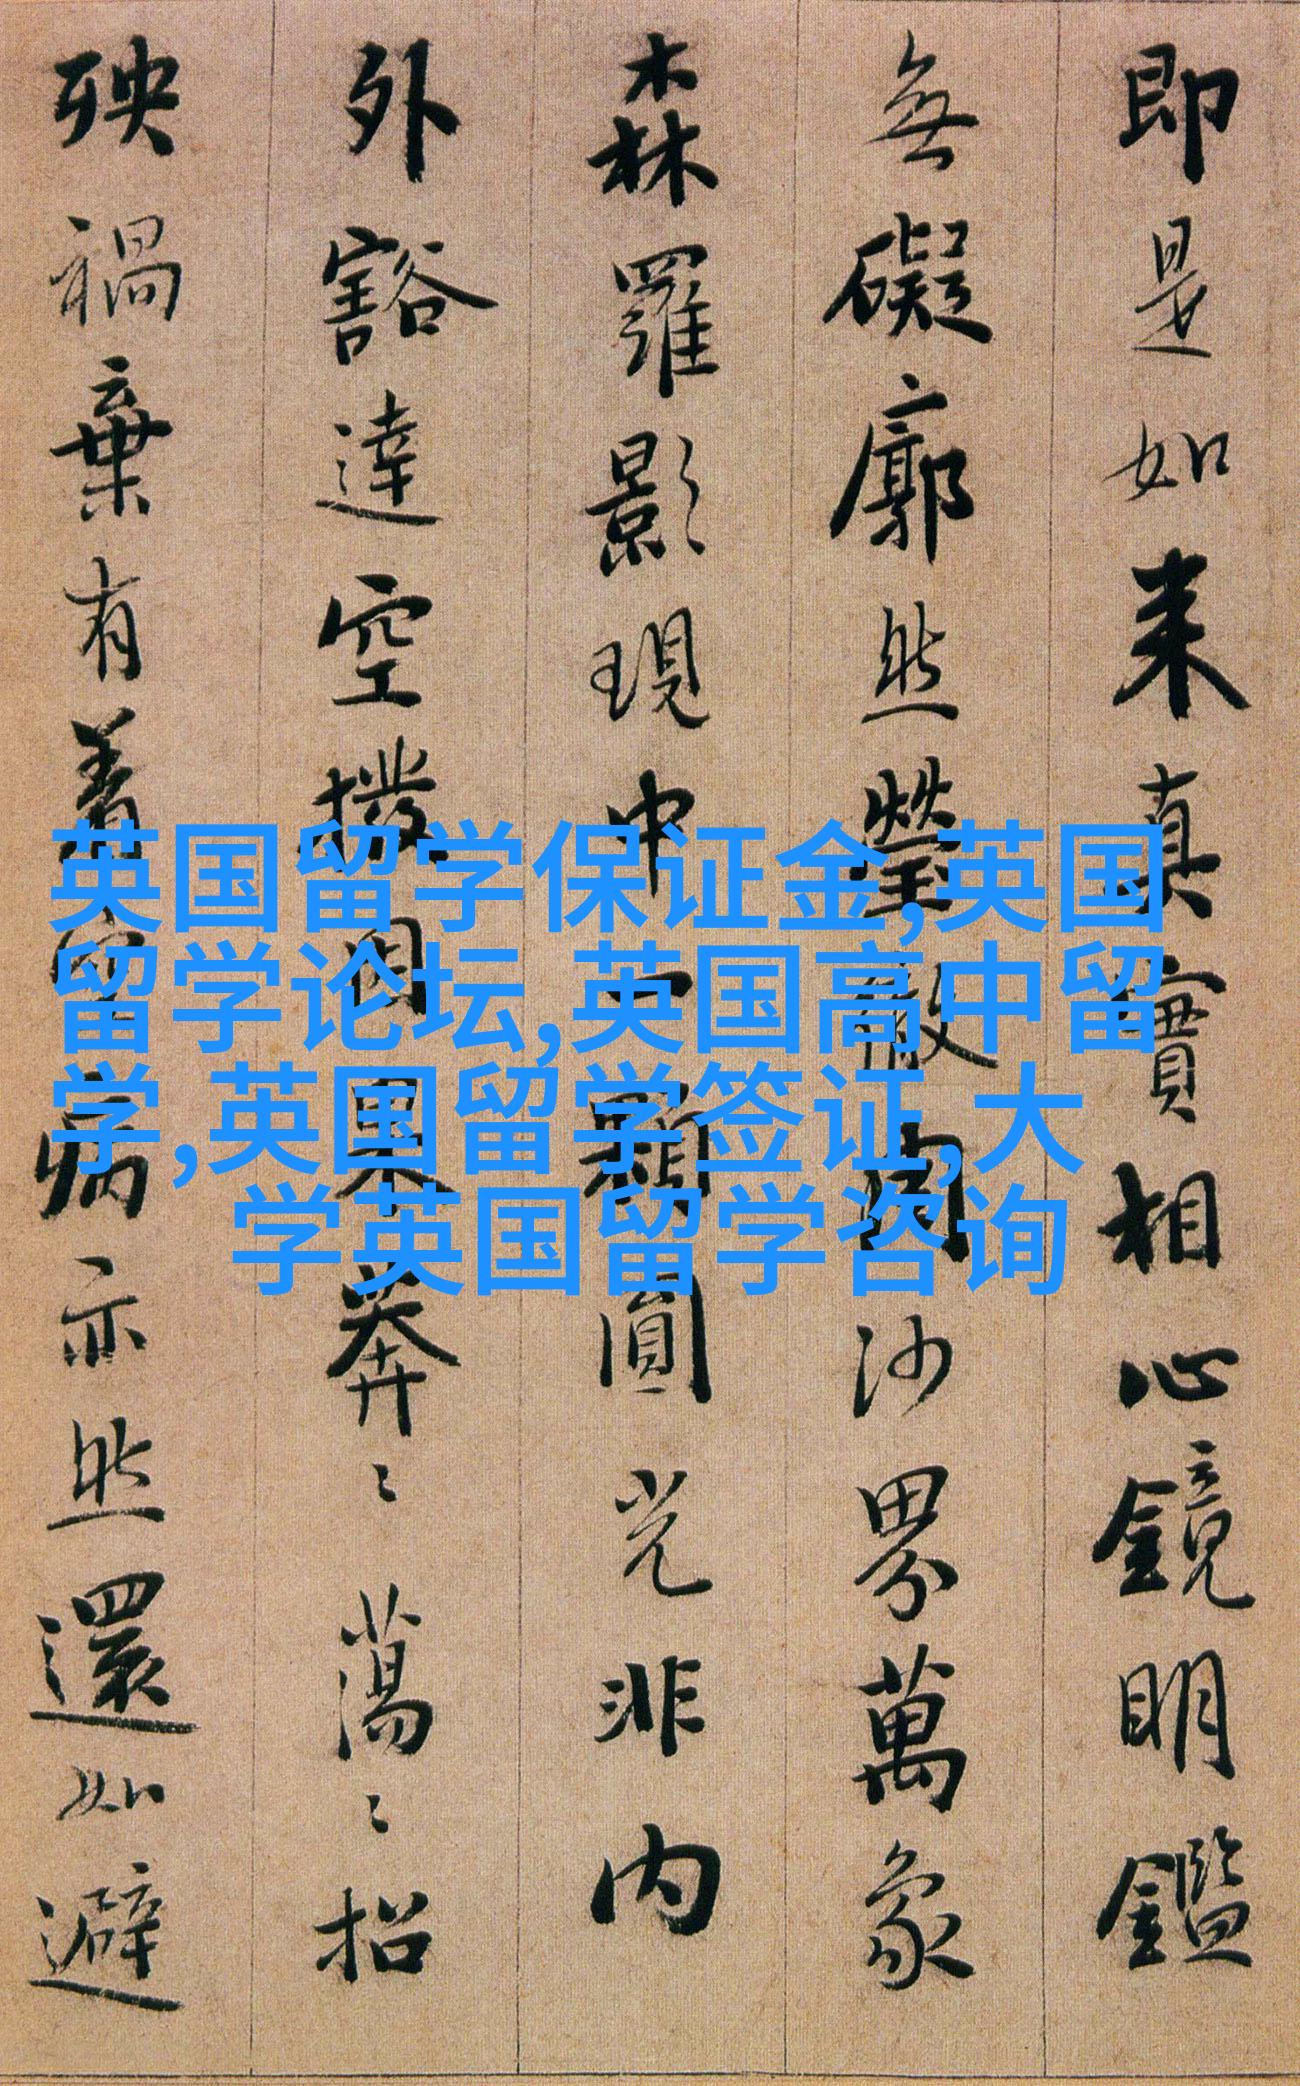 即是如来真實相心鏡明鑑
無礙廓然瑩徹周沙界萬象
森羅影現中一顆圓光非内
外豁達空撥因果莽〻蕩〻招
殃禍棄有著空病亦然還如避
英国留学保证金,英国
留学论坛,英国高中留
学,英国留学签证,大
学英国留学咨询